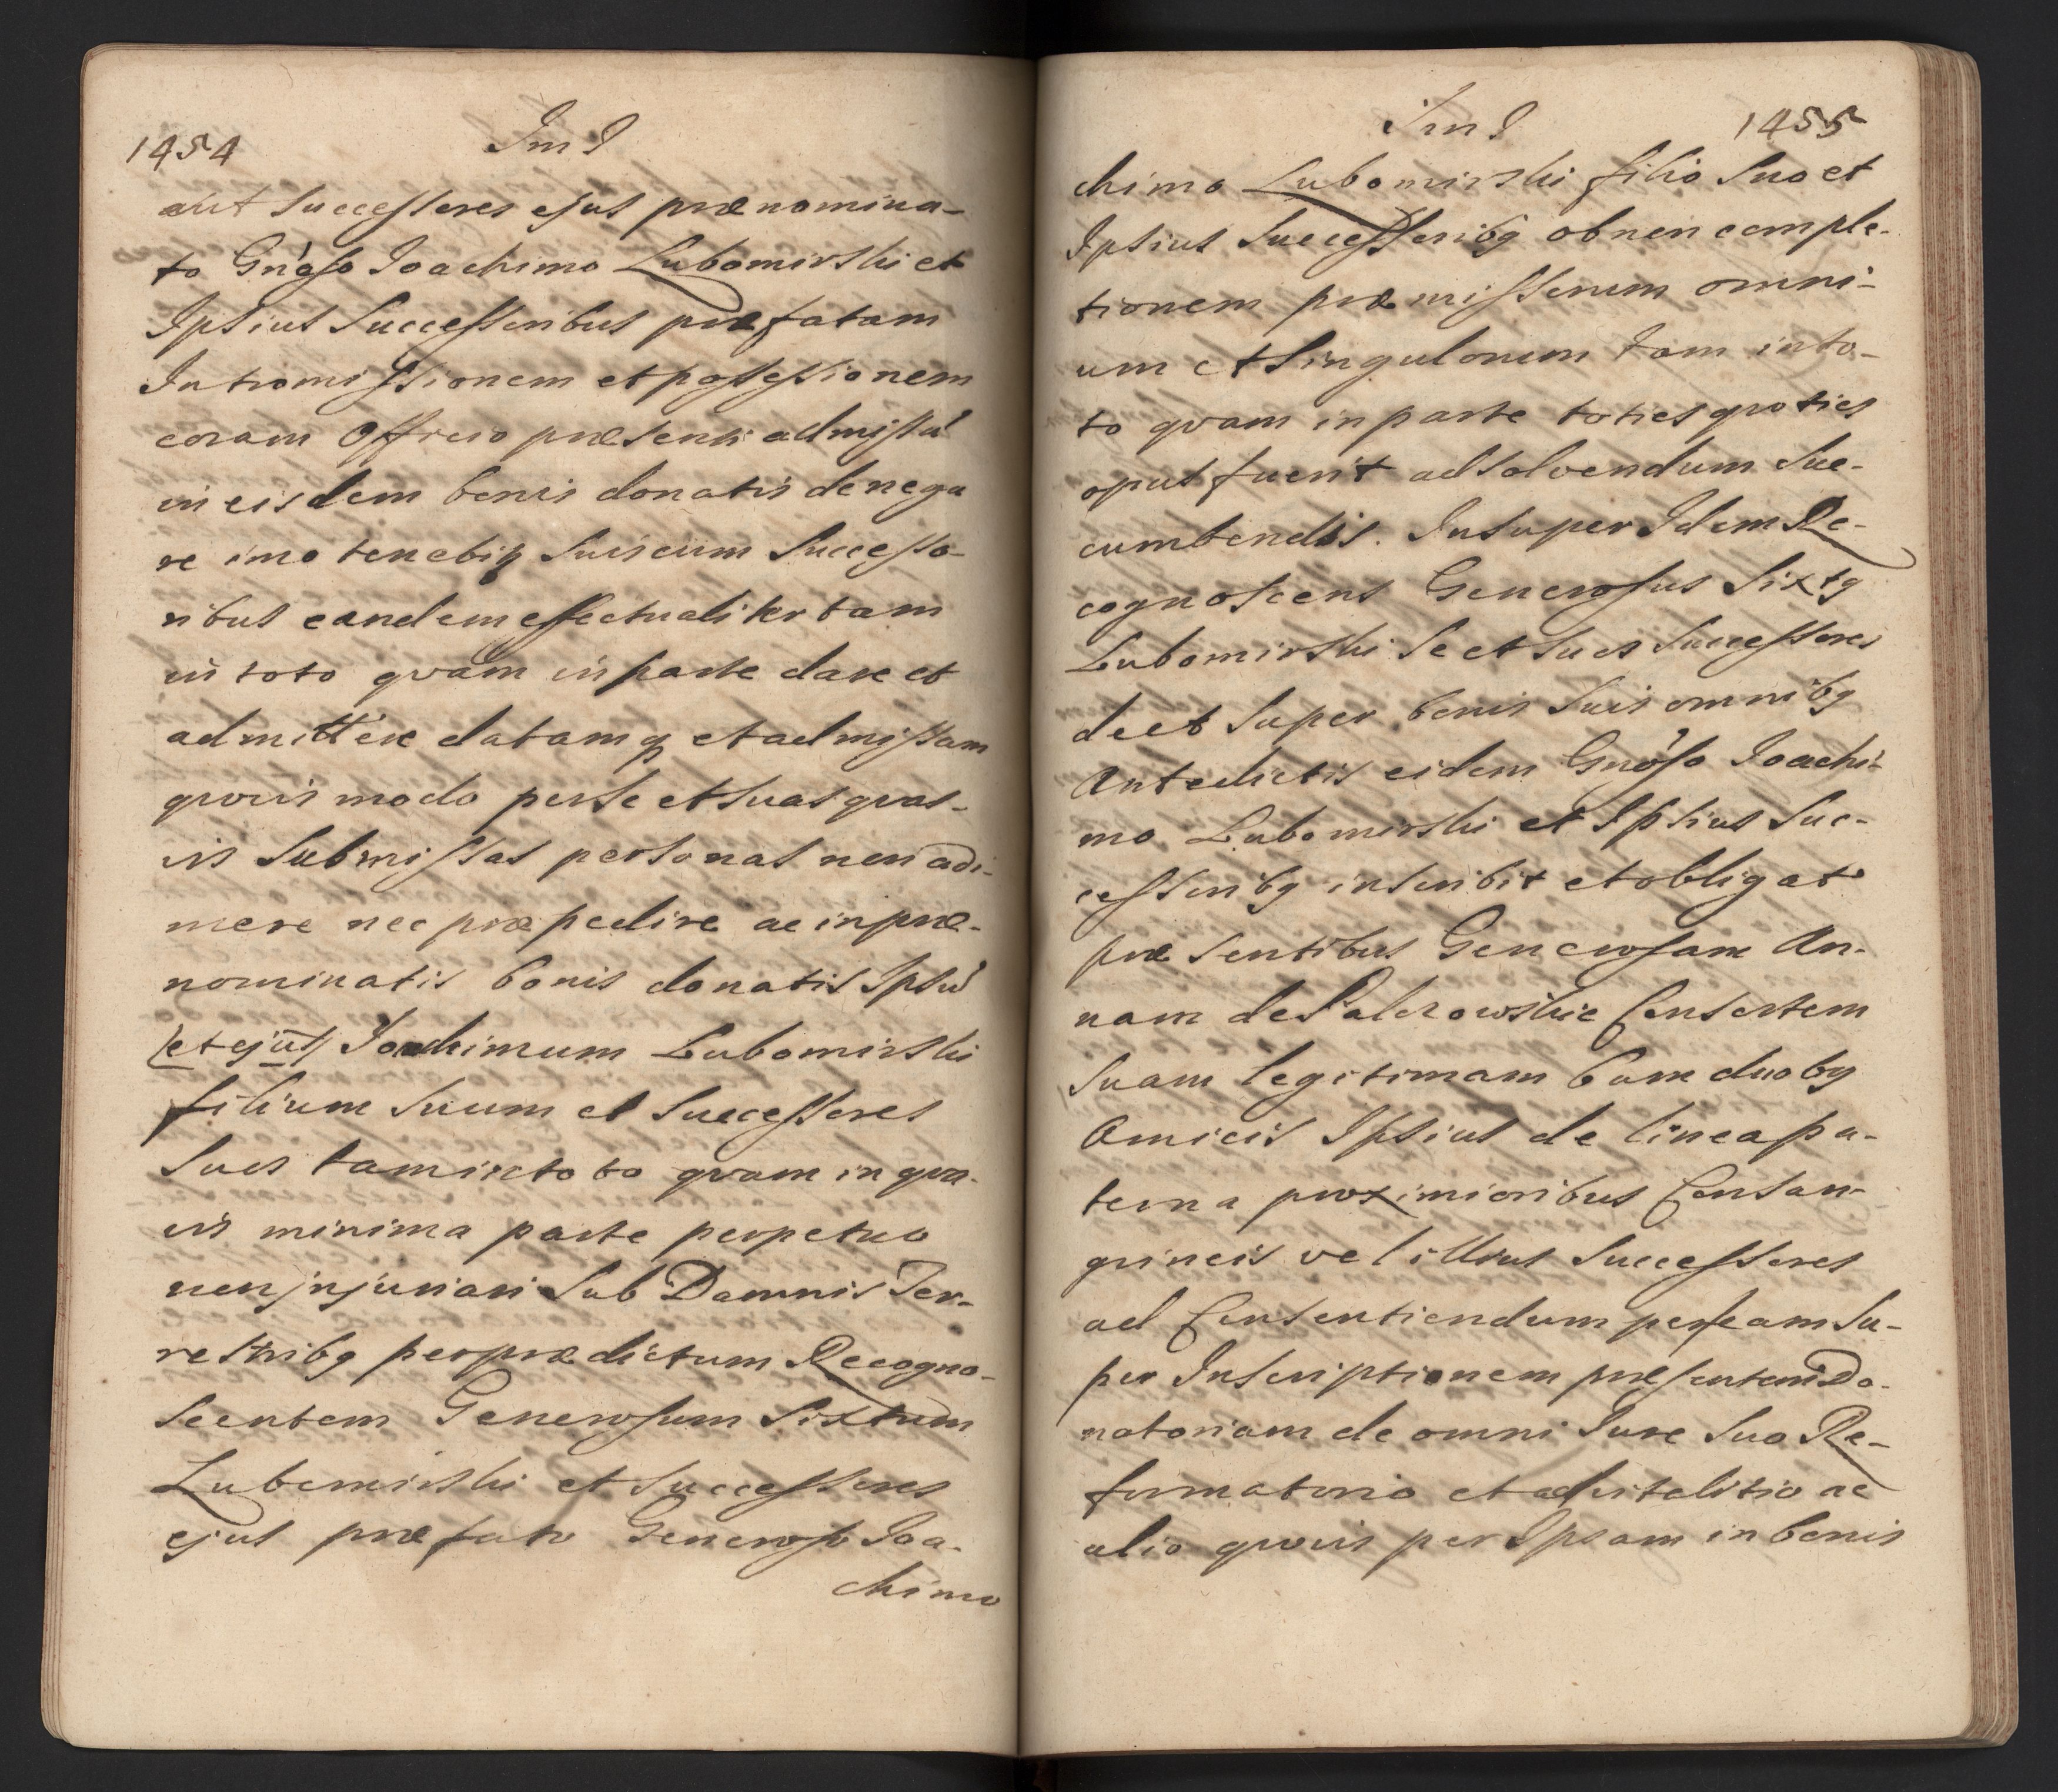 1454
aut Successores ejus prænomina-
to Gnōso Joachimo Lubomirski et
Ipsius Successoribus præfatam
Intromissionem et possessionem
coram Officio præsenti admissū
in eisdem bonis donatis denega
re imo tenebiṭ Suis cum Successo-
ribus eandem effectualiter tam
in toto qvam in parte dare et
admittere datamq et admissam
qvovis modo per se et suas qvas-
vis Submissas personas non adi-
mere nec præpedire ac in præ-
nominatis bonis donatis Ipsū
(et ejus) Joachimum Lubomirski
filium Suum et Successores
Suos tam in toto qvam in qva-
vis minima parte perpetuo
non injuriari Sub Damnis Ter-
restribq per prædictum Recogno-
scentem Generosum Sixtum
Lubomirski et Successores
ejus præfato Generoso Joa-
chimo
1455
chimo Lubomirski filio Suo et
Ipsius Successoribq ob non comple-
tionem præmissorum omni-
um et Singulorum tam in to-
to qvam in parte toties qvoties
opus fuerit ad Solvendum Suc-
cumbendis. Insuper Idem Re-
cognoscens Generosus Sixtq
Lubomirski Se et Suos Successores
de et Super bonis Suis omnibq
Antedictis eidem Gnōso Joachi-
mo Lubomirski et Ipsius Suc-
cessoribq inscribit et obligat
præsentibus Generosam An-
nam de Consortem
Suam legitimam cum duobq
Amicis Ipsius de linea pa-
terna proximioribus Consan-
gvineis vel illius Successores
ad Consentiendum per eam Su-
per Inscriptionem præsentem Do-
natoriam de omni Jure Suo Re-
formatorio et advitalitio ac
alio qvovis per Ipsam in bonis